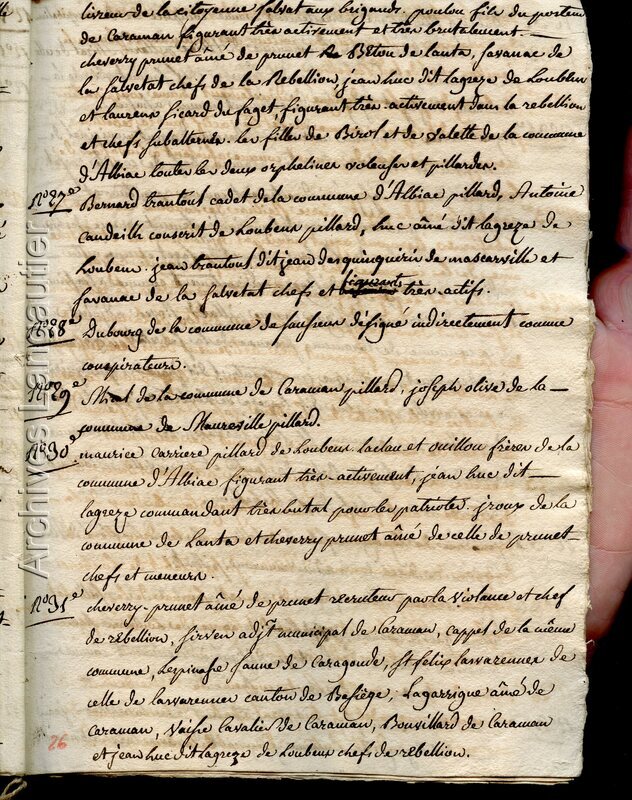 livreur de la citoyenne Salvat aux brigands. poulou fils du posteur
de Caraman figurant très activement et très brutalement. —
cheverry prunet âiné de prunet Beton de lanta, favanac de
la salvetat chefs de la Rebellion, jean huc dit lagreze de Loubens
et laurens sicard du faget, figurant très activement dans la rebellion
et chefs subalternes. les filles de Birol et de Valette de la commune
d'Albiac toutes les deux orphelines voleuses et pillardes.
N.º 27.e
Bernard trantoul cadet de la commune d'Albiac pillard, Antoine
Caudeilh conscrit de Loubens pillard, huc âiné dit lagreze de
Loubens. jean trantoul dit jean desquinquirin de mascarville et
favanac de la salvetat chefs et figurants très actifs.
Nº 28.e
Dubourg de la commune de désigné indirectement comme
conspirateurs.
Nº 29.e
Miral de la commune de Caraman pillard, joseph olive de la —
commune de Maureville pillard.
Nº 30.e
maurice carriere pillard de Loubens laclau et ouillou frères de la
commune d'Albiac figurant très activement, jean huc dit —
lagreze commandant très brutal pour les patriotes. jroux de la
commune de Lanta et cheverry prunet âiné de celle de prunet
chefs et meneurs.
Nº 31.e
cheverry-prunet âiné de prunet recruteur par la violance et chef
de rebellion, sirven adjt municipal de Caraman, cappel de la même
commune, Lespinasse jeune de Caragoude, st felix lavarennes de
celle de lavarennes canton de Besiège, Lagarrigue âiné de
Caraman, Vaisse cavalier de Caraman, Bouvillard de Caraman
et jean huc dit lagreze de Loubens chefs de rebellion.
26
Archives Lanautier